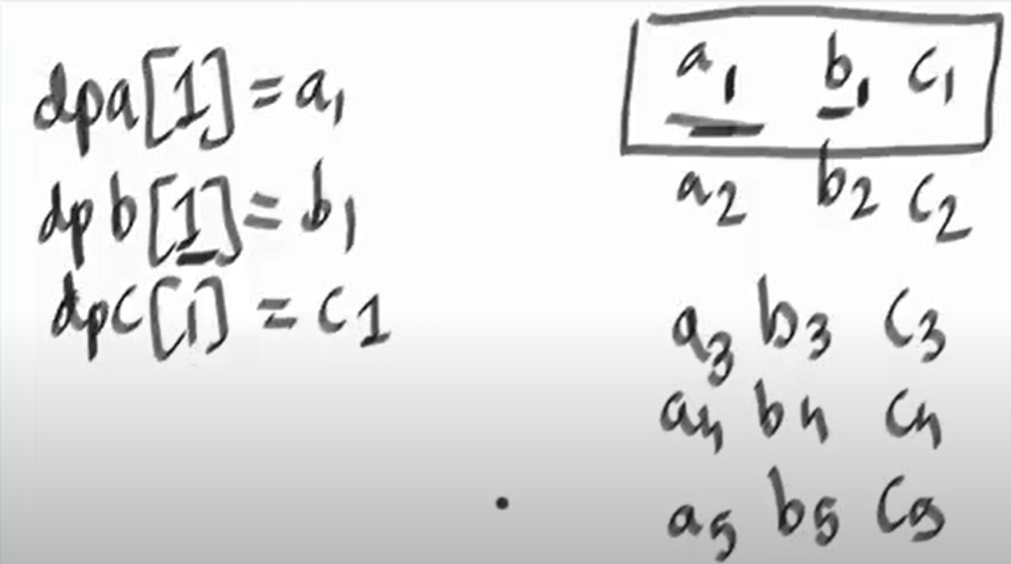 dpa[1] = a₁
dpb[1] = b₁
dpc[1] = c1
a₁ b₁ c₁
a₂ b₂ c₂
a₃ b₃ c₃
a₄ b₄ c₄
a₅ b₅ c₅